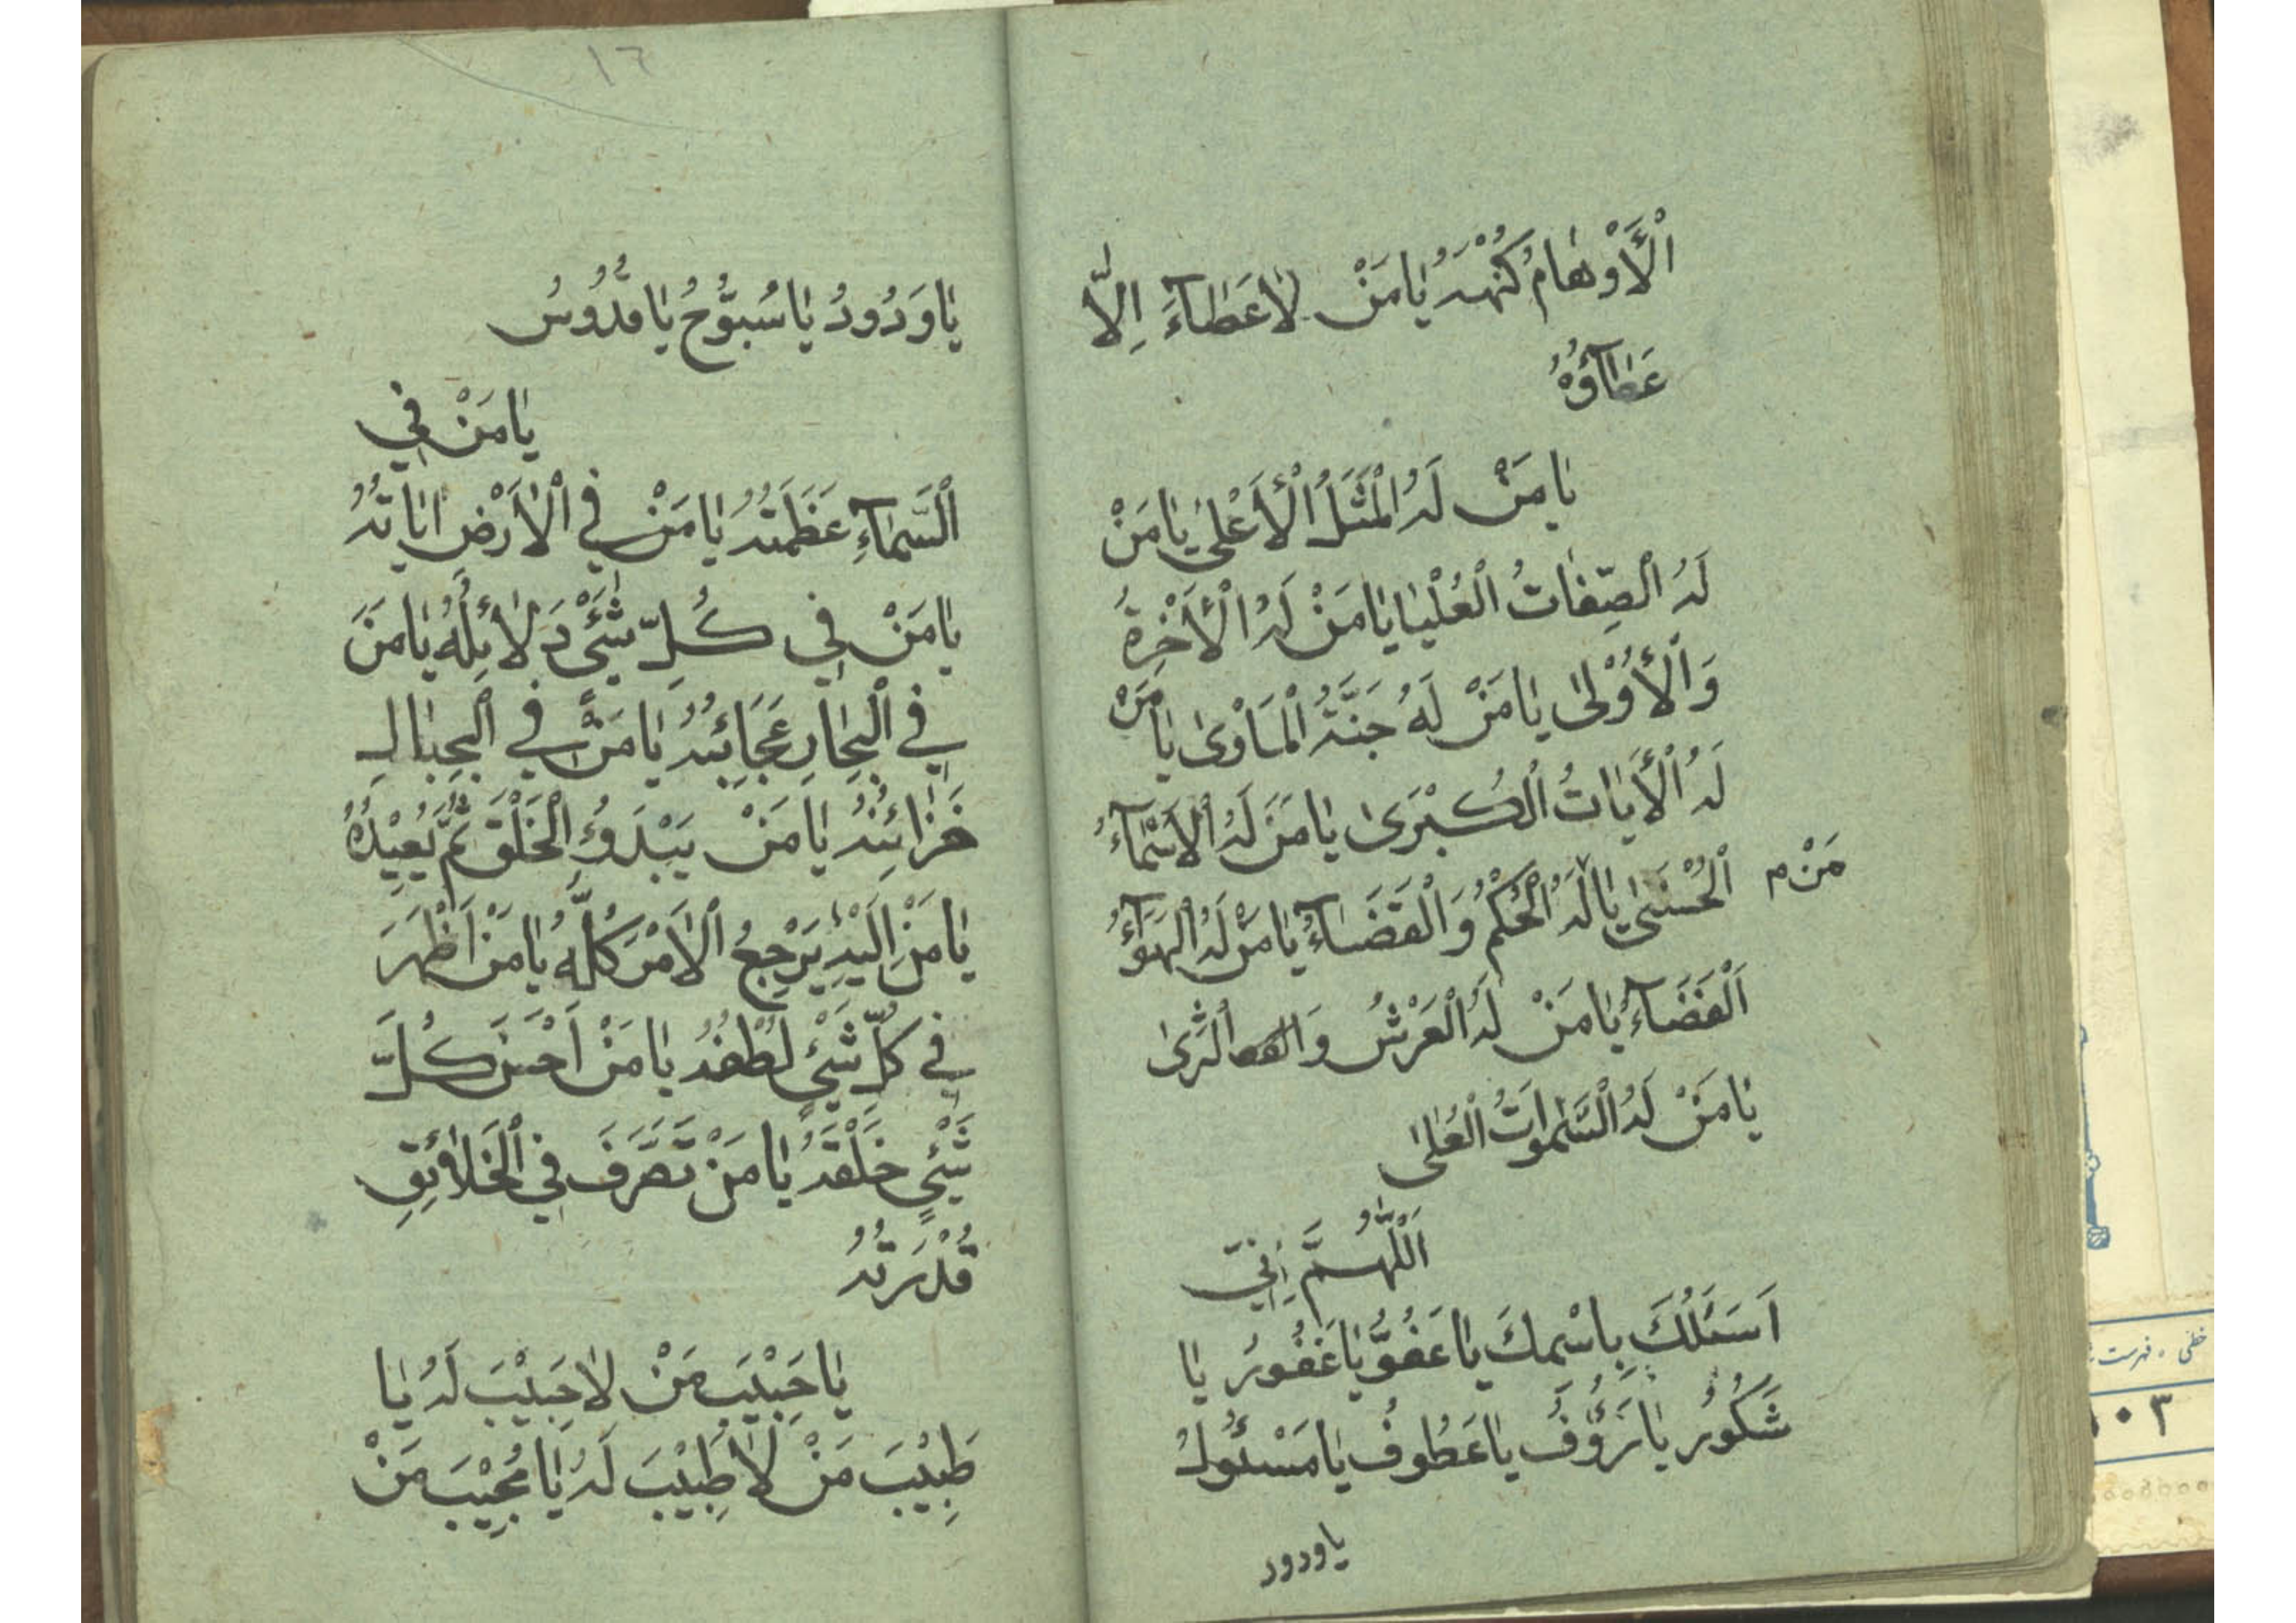 اَلْأَوْهٰامُ كُنْهَهُ يٰامَنْ لاٰعَطٰاۤءَ اِلاّٰ
عَطٰاۤؤُهُ
يٰامَنْ لَهُ الْمَثَلُ الْأَعْلىٰ يٰامَنْ
لَهُ الصِّفٰاتُ الْعُلْيٰا يٰامَنْ لَهُ الْأٰخِرَةُ
وَالْأُوْلىٰ يٰامَنْ لَهُ جَنَّةُ الْمَاْوىٰ يٰامَنْ
لَهُ الْأٰيٰاتُ الْكُبْرَىٰ يٰامَنْ لَهُ الْاَسْمٰاۤءُ
الْحُسْنىٰ يٰا لَهُ الْحُكْمُ وَالْقَضٰاۤءُ يٰامَنْ لَهُ الْهَوٰاۤءُ
مَنْ م
اَلْفَضٰاۤءُ يٰامَنْ لَهُ الْعَرْشُ وَ الثَّرىٰ
يٰامَنْ لَهُ السَّمٰوٰاتُ الْعُلىٰ
اَللّٰهُمَّ اِنّي
اَسْئَلُكَ بِاسْمِكَ يٰاعَفُوُّ يٰاغَفُورُ يٰا
شَكُوْرُ يٰارَؤُفُ يٰاعَطُوفُ يٰامَسْئُولُ
ياودود
١٦
يٰاوَدُودُ يٰاسُبُّوْحُ يٰاقُدُّوسُ
يٰامَنْ في
السَّمٰاۤءِ عَظَمَتُهُ يٰامَنْ في الْاَرْضِ اٰيٰاتُهُ
يٰامَنْ في كُلِّ شَيْءٍ دَلاٰئِلُهُ يٰامَنْ
في الْبِحٰارِ عَجٰائِبُهُ يٰامَنْ في الْجِبٰالِ
خَزٰائِنُهُ يٰامَنْ يَبْدَؤُ الْخَلْقَ ثُمَّ يُعِيْدُهُ
يٰامَنْ اِلَيْهِ يَرْجِعُ الْاَمْرُ كُلُّهُ يٰامَنْ اَظْهَرَ
في كُلِّ شَيْءٍ لُطْفُهُ يٰامَنْ اَحْسَنَ كُلَّ
شَيْءٍ خَلْقَهُ يٰامَنْ تَصَرَّفَ في الْخَلاٰئِقِ
قُدْرَتُهُ
يٰاحَبِيْبَ مَنْ لاٰحَبِيْبَ لَهُ يٰا
طَبِيْبَ مَنْ لاٰطَبِيْبَ لَهُ يٰامُجِيْبَ مَنْ
خطی ، فهرست
٠٣